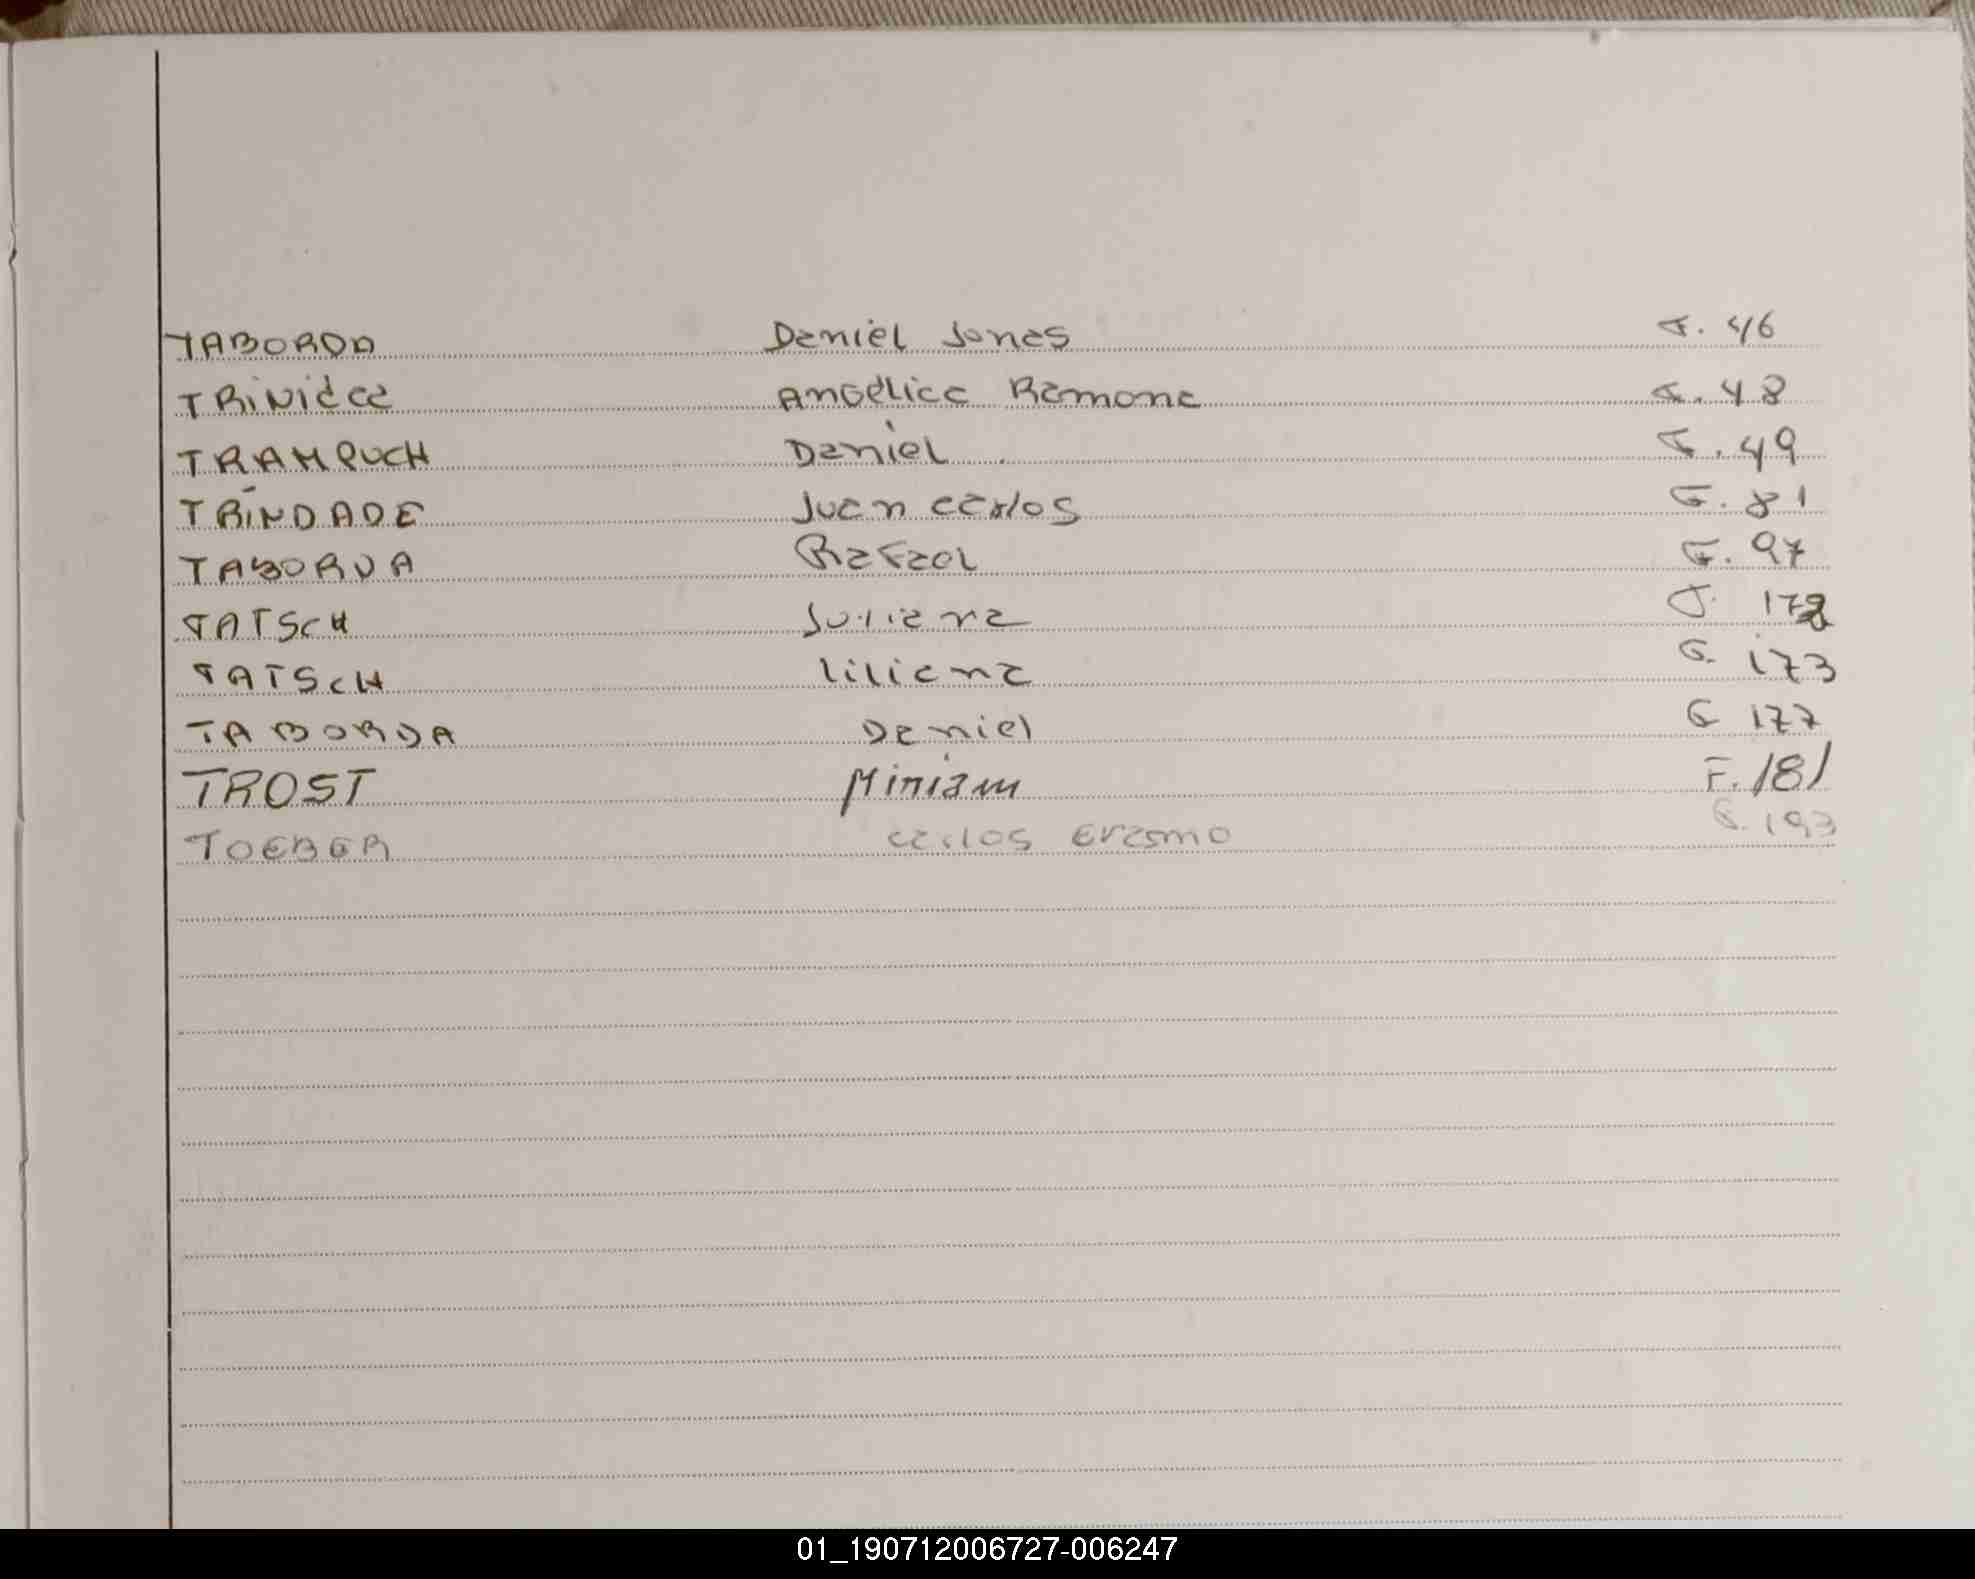 TABORDA Daniel Jonas F. 46
TRiNidad Angélica Ramona F. 48
TRAMPUCH Daniel F. 49
TRINDADE Juan Carlos F. 81
TABORDA Rafael F. 97
TATSCH Juliana F. 172
TATSCH liliana F. 173
TABORDA Daniel F 177
TROST Miriam F. 181
TOEBER Carlos Erasmo F. 193
01_190712006727-006247